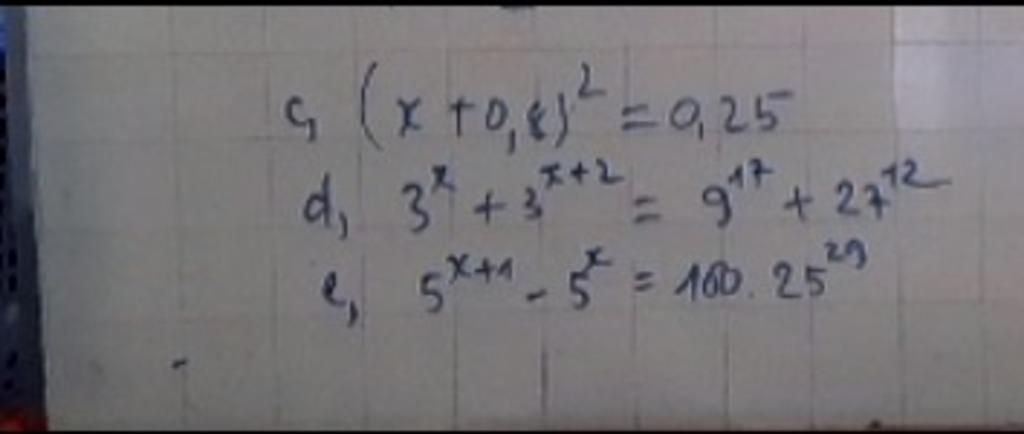 c, (x + 0,8)² = 0,25
d, 3ˣ + 3ˣ⁺² = 9¹⁷ + 27¹²
e, 5ˣ⁺¹ - 5ˣ = 100 . 25²⁹